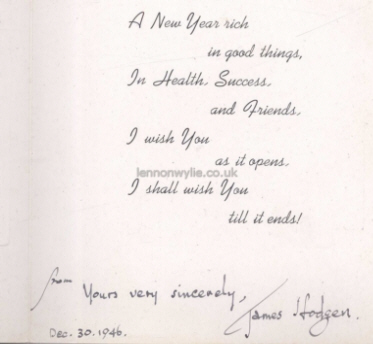 A New Year rich
in good things,
In Health, Success,
and Friends,
I wish You
as it opens,
lennonwylie.co.uk
I shall wish You
till it ends!
from Yours very sincerely,
James Hodgen.
Dec. 30. 1946.